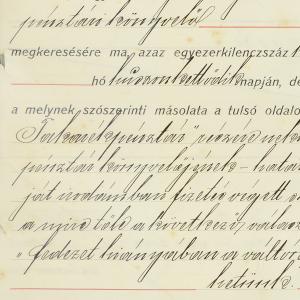 pénztár könyvelő
megkeresésére ma, azaz egyezerkilenczszáz
hó huszonkettődik napján, de
a melynek szószerinti másolata a tulsó oldalo
Takarékpénztár
pénztár könyvelőjének – hatá
ját irodámban fizetés végett
a mire tőle a következő válasz
„fedezet hiányában a váltó
hetünk.